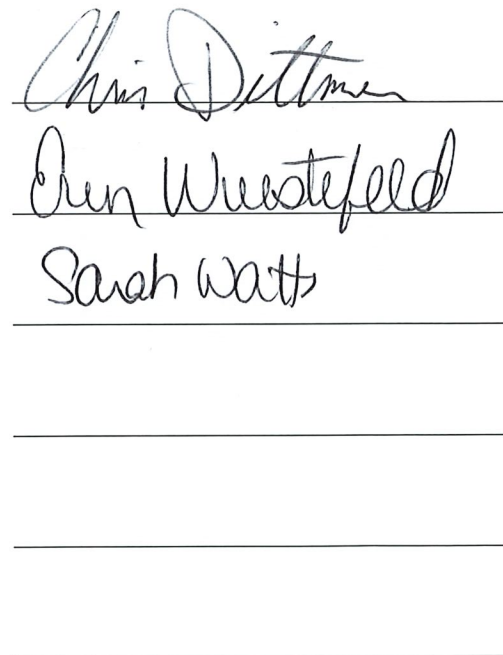 Chris Dittmer
Erin Wuestefeld
Sarah Watts